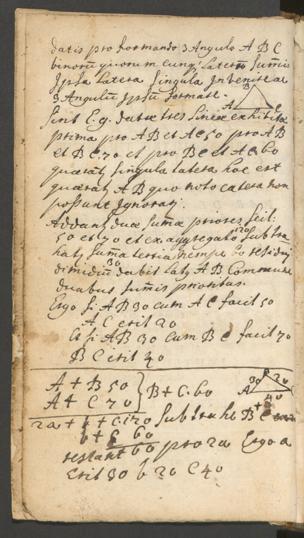 datis pro formando 3Angulo A B C
binorum quorumcunq; Laterum Sumis
Ipsa Latera Singula Invenire ac
3Angulum Ipsum formare. B
A C
Sint E.g. datae tres Lineae exhibitae
prima pro AB et AC 50 pro AB
et BC 70 et pro BC et AC 60
quaerat Singula latera hoc est
quaerat AB quo noto caetera non
possunt Ignorari.
Addant duae Sumae priores Scil:
50 et 70 et ex aggregato 120 Subtra-
hat Suma tertia nempe 60 residui
dimidium 30 dabit Lat AB Commune
duabus Sumis prioribus.
Ergo Si AB 30 cum AC facit 50
AC erit 20
Et Si AB 30 Cum BC facit 70
BC erit 40
A + B 50 } B + C. 60
A + C 70
2a + b + c. 120 Subtrahe B C
b + c 60
restant 60 pro 2a Ergo a
Erit 30 b 20 C 40